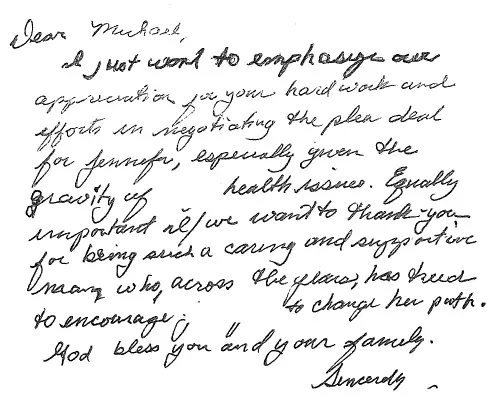 Dear Michael,
I just want to emphasize our
appreciation for your hard work and
efforts in negotiating the plea deal
for Jennefer, especially given the
gravity of health issues. Equally
important is/we want to thank you
for being such a caring and supportive
who, across the years, has tried
to encourage to change her path.
God bless you and your family.
Sincerely